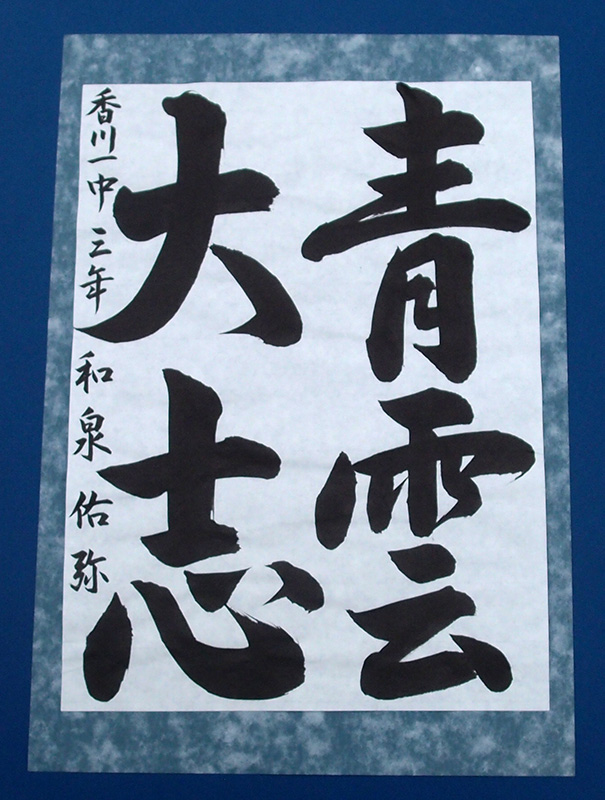 青雲
大志
香川一中三年和泉佑弥